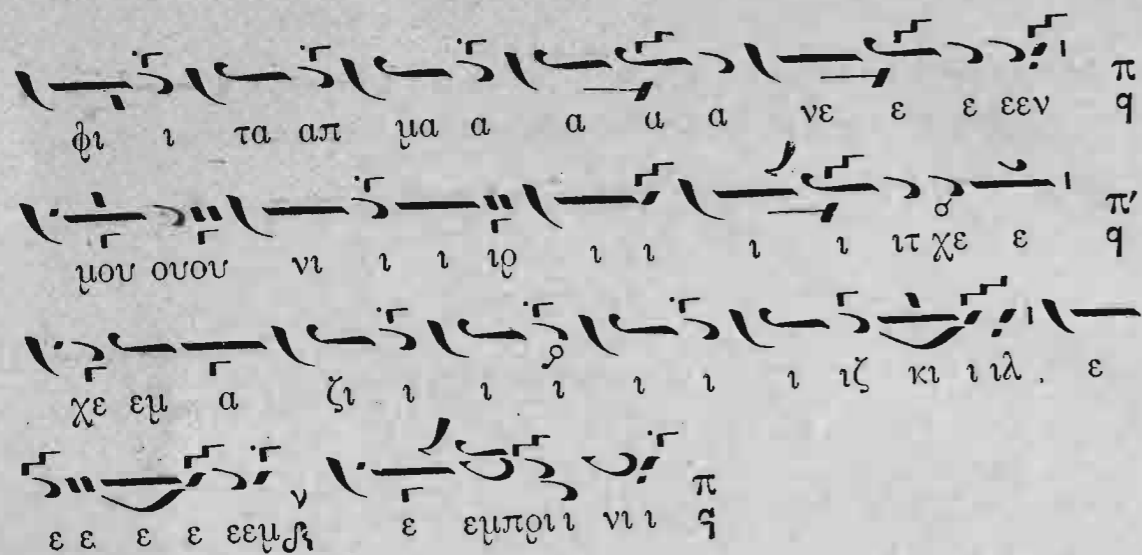 φι ι τα απ μα α α α α νε ε ε εεν π q
μου ουου νι ι ι ιρ ι ι ι ι ιτ χε ε π' q
χε εμ α ζι ι ι ι ι ι ι ιζ κι ι ιλ . ε
ε ε ε ε εεμ ν ε εμπρι ι νι ι π q